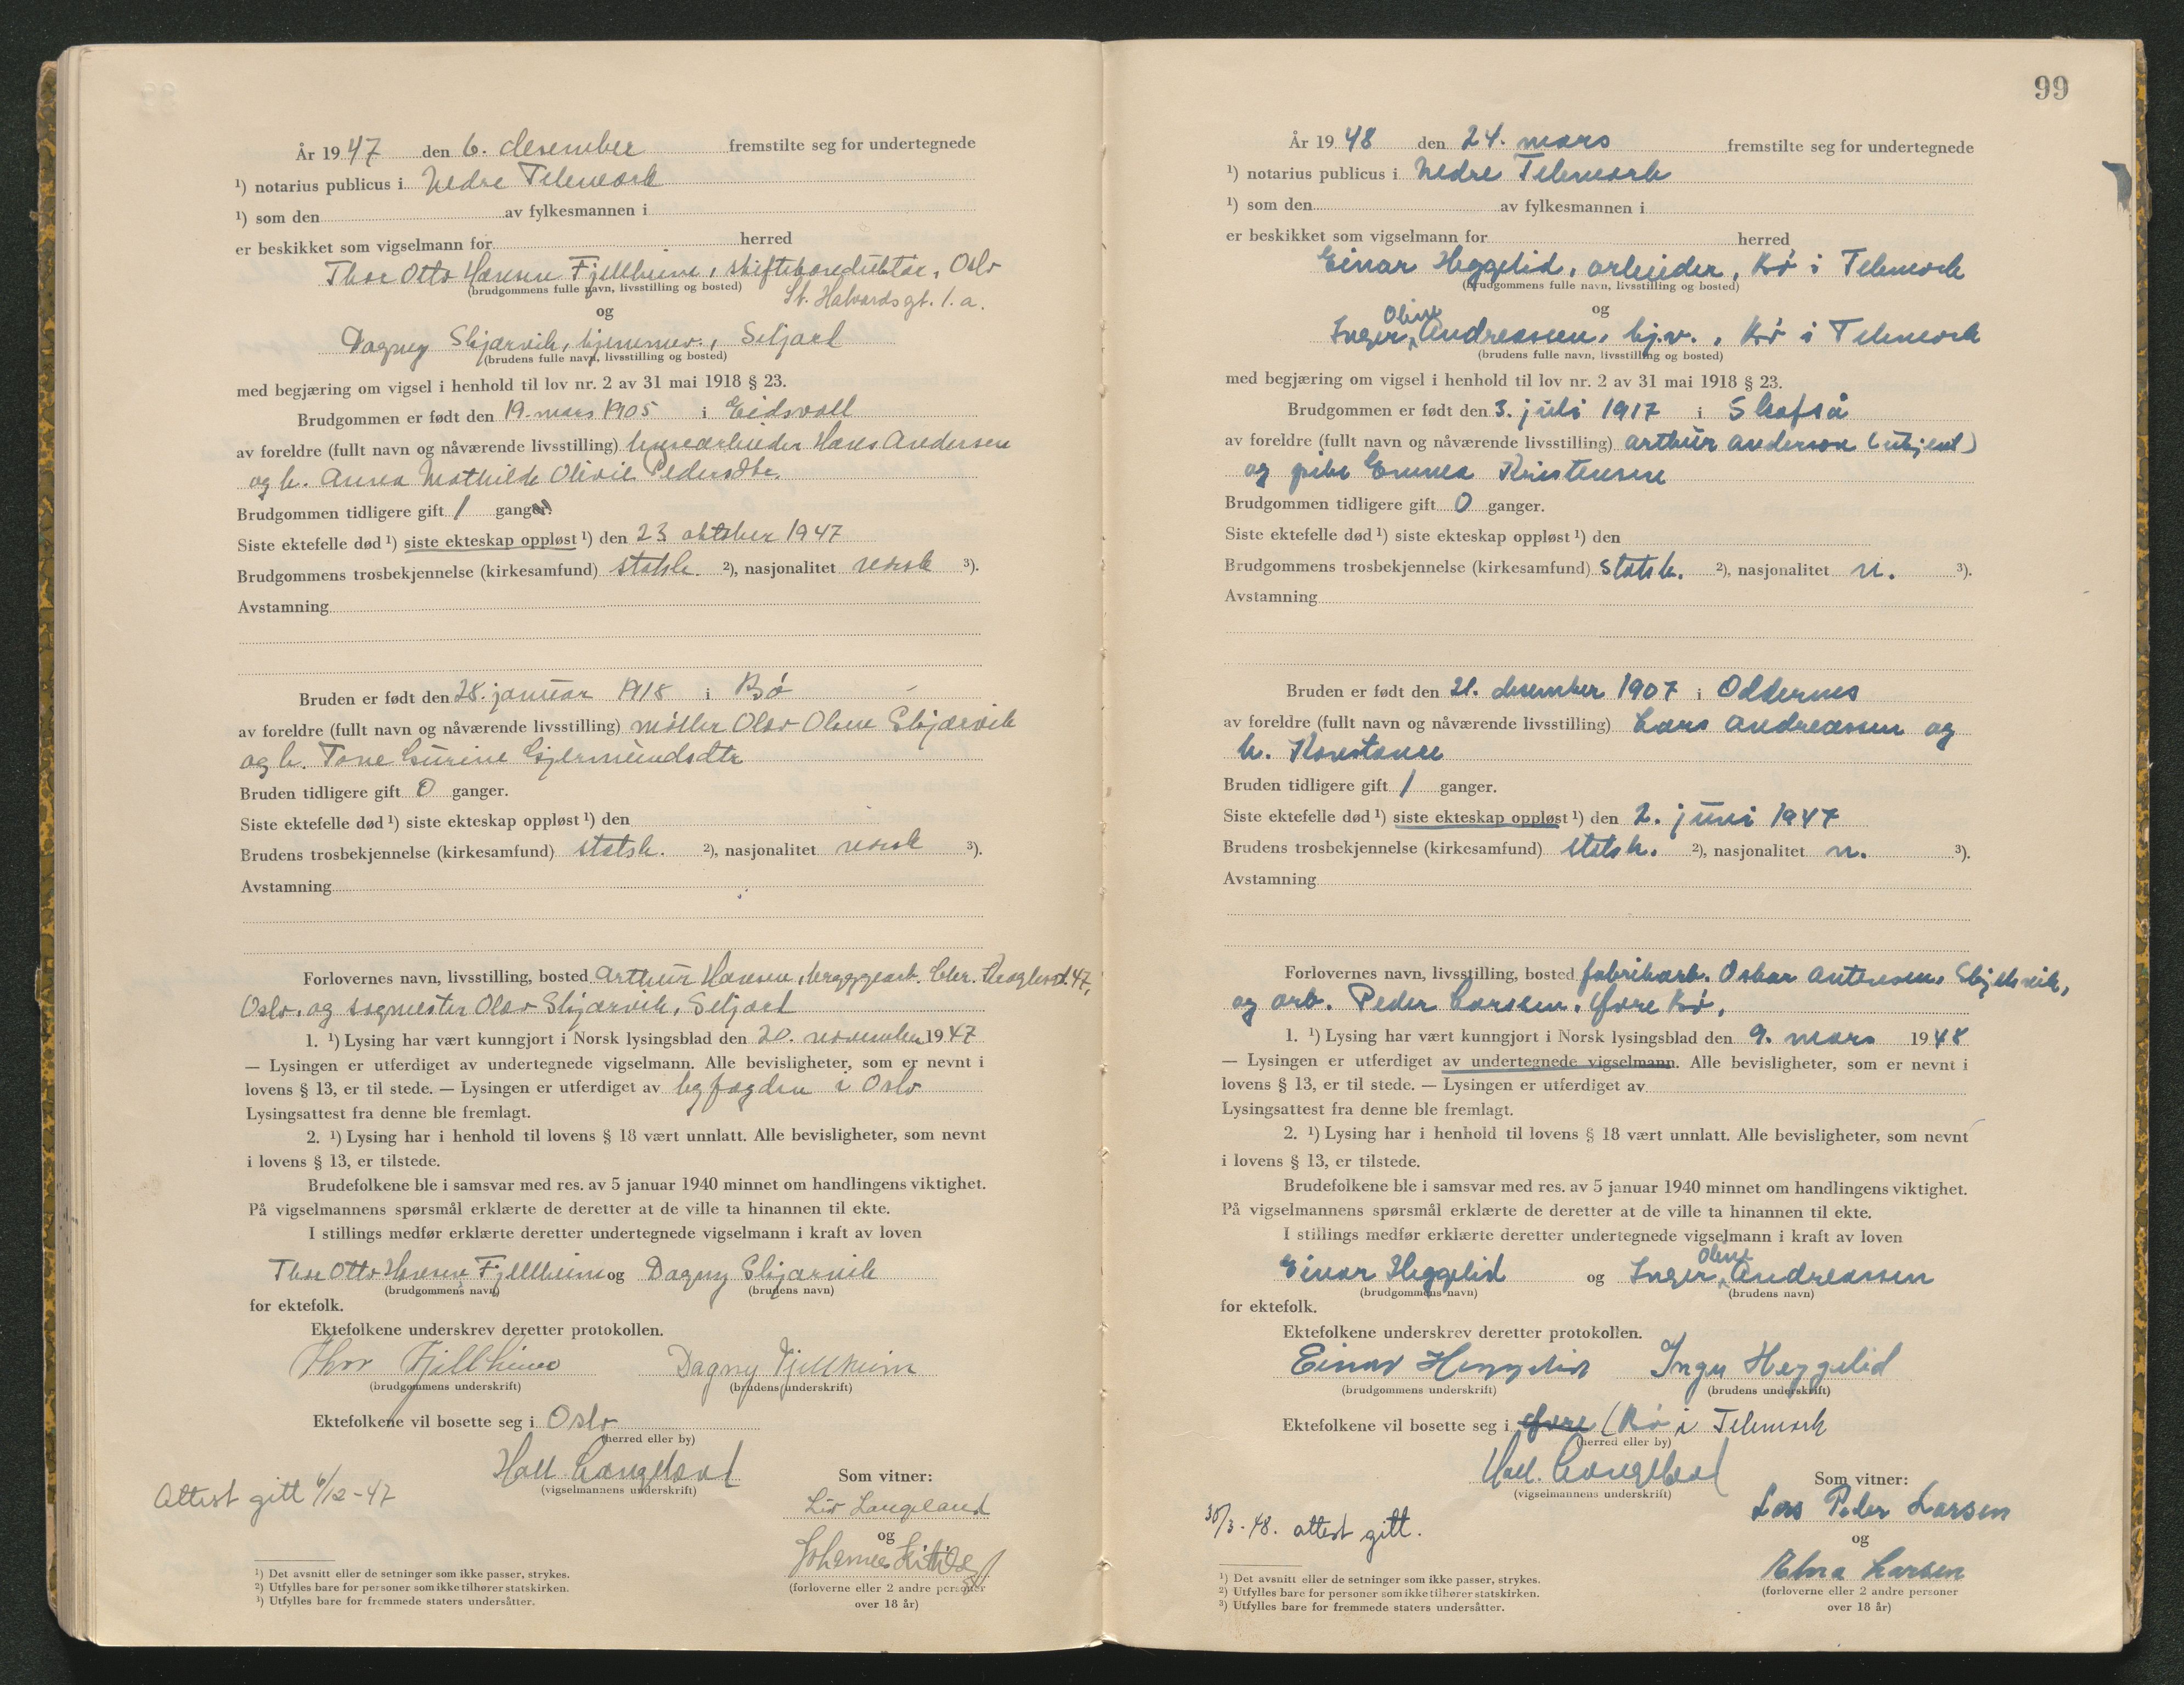 År 1947 den 6. desember fremstilte seg for undertegnede
¹) notarius publicus i Nedre Telemark
¹) som den av fylkesmannen i
er beskikket som vigselmann for herred
Thor Otto Hansen Fjellheim, skiftekonduktør, Oslo
(brudgommens fulle navn, livsstilling og bosted) St. Halvards gt. 1.a.
og
Dagny Skjarvik, hjemmev., Seljord
(brudens fulle navn, livsstilling og bosted)
med begjæring om vigsel i henhold til lov nr. 2 av 31 mai 1918 § 23.
Brudgommen er født den 19. mars 1905 i Eidsvoll
av foreldre (fullt navn og nåværende livsstilling) Hans Andersen
og h. Anna Mathilde Pedersdtr.
Brudgommen tidligere gift 1 ganger.
Siste ektefelle død ¹) siste ekteskap oppløst ¹) den 23 oktober 1947
Brudgommens trosbekjennelse (kirkesamfund) statsk. ²), nasjonalitet norsk ³).
Avstamning
Bruden er født den 28. januar 1918 i Bø
av foreldre (fullt navn og nåværende livsstilling) møller Olav Olsen Skjarvik
og h. Tone Gurine Gjermundsdtr
Bruden tidligere gift 0 ganger.
Siste ektefelle død ¹) siste ekteskap oppløst ¹) den
Brudens trosbekjennelse (kirkesamfund) statsk. ²), nasjonalitet norsk ³).
Avstamning
Forlovernes navn, livsstilling, bosted Arthur Hansen, bryggearb. 47,
Oslo, og sagmester Olav Skjarvik, Seljord
1. ¹) Lysing har vært kunngjort i Norsk lysingsblad den 20. november 1947
— Lysingen er utferdiget av undertegnede vigselmann. Alle bevisligheter, som er nevnt i
lovens § 13, er til stede. — Lysingen er utferdiget av byfogden i Oslo
Lysingsattest fra denne ble fremlagt.
2. ¹) Lysing har i henhold til lovens § 18 vært unnlatt. Alle bevisligheter, som nevnt
i lovens § 13, er tilstede.
Brudefolkene ble i samsvar med res. av 5 januar 1940 minnet om handlingens viktighet.
På vigselmannens spørsmål erklærte de deretter at de ville ta hinannen til ekte.
I stillings medfør erklærte deretter undertegnede vigselmann i kraft av loven
Thor Otto Hansen Fjellheim og Dagny Skjarvik
(brudgommens navn) (brudens navn)
for ektefolk.
Ektefolkene underskrev deretter protokollen.
Thor Fjellheim Dagny Fjellheim
(brudgommens underskrift) (brudens underskrift)
Ektefolkene vil bosette seg i Oslo
(herred eller by)
Hall Langeland
(vigselmannens underskrift)
Som vitner:
Attest gitt 6/12-47
Liv Langeland
og
Johannes
(forloverne eller 2 andre personer
over 18 år)
¹) Det avsnitt eller de setninger som ikke passer, strykes.
²) Utfylles bare for personer som ikke tilhører statskirken.
³) Utfylles bare for fremmede staters undersåtter.
99
År 1948 den 24. mars fremstilte seg for undertegnede
¹) notarius publicus i Nedre Telemark
¹) som den av fylkesmannen i
er beskikket som vigselmann for herred
Einar Heggelid, arbeider, Bø i Telemark
(brudgommens fulle navn, livsstilling og bosted)
og
Inger Oline Andreassen, hj.v., Bø i Telemark
(brudens fulle navn, livsstilling og bosted)
med begjæring om vigsel i henhold til lov nr. 2 av 31 mai 1918 § 23.
Brudgommen er født den 3. juli 1917 i Skafså
av foreldre (fullt navn og nåværende livsstilling) Arthur Anderson (ukjent)
og pike Emma Kristensen
Brudgommen tidligere gift 0 ganger.
Siste ektefelle død ¹) siste ekteskap oppløst ¹) den
Brudgommens trosbekjennelse (kirkesamfund) statsk. ²), nasjonalitet n. ³).
Avstamning
Bruden er født den 21. desember 1907 i Oddernes
av foreldre (fullt navn og nåværende livsstilling) Lars Andreassen og
h. Konstanse
Bruden tidligere gift 1 ganger.
Siste ektefelle død ¹) siste ekteskap oppløst ¹) den 2. juni 1947
Brudens trosbekjennelse (kirkesamfund) statsk. ²), nasjonalitet n. ³).
Avstamning
Forlovernes navn, livsstilling, bosted fabrikarb. Oskar Skjelsvik,
og arb. Peder Larssen, Bø.
1. ¹) Lysing har vært kunngjort i Norsk lysingsblad den 9. mars 1948
— Lysingen er utferdiget av undertegnede vigselmann. Alle bevisligheter, som er nevnt i
lovens § 13, er til stede. — Lysingen er utferdiget av
Lysingsattest fra denne ble fremlagt.
2. ¹) Lysing har i henhold til lovens § 18 vært unnlatt. Alle bevisligheter, som nevnt
i lovens § 13, er tilstede.
Brudefolkene ble i samsvar med res. av 5 januar 1940 minnet om handlingens viktighet.
På vigselmannens spørsmål erklærte de deretter at de ville ta hinannen til ekte.
I stillings medfør erklærte deretter undertegnede vigselmann i kraft av loven
Einar Heggelid og Inger Oline Andreassen
(brudgommens navn) (brudens navn)
for ektefolk.
Ektefolkene underskrev deretter protokollen.
Einar Heggelid Inger Heggelid
(brudgommens underskrift) (brudens underskrift)
Ektefolkene vil bosette seg i (Bø i Telemark
(herred eller by)
Hall. Langeland
(vigselmannens underskrift)
Som vitner:
30/3-48. attest gitt.
Lars Peder Larsen
og
Elna Larsen
(forloverne eller 2 andre personer
over 18 år)
¹) Det avsnitt eller de setninger som ikke passer, strykes.
²) Utfylles bare for personer som ikke tilhører statskirken.
³) Utfylles bare for fremmede staters undersåtter.